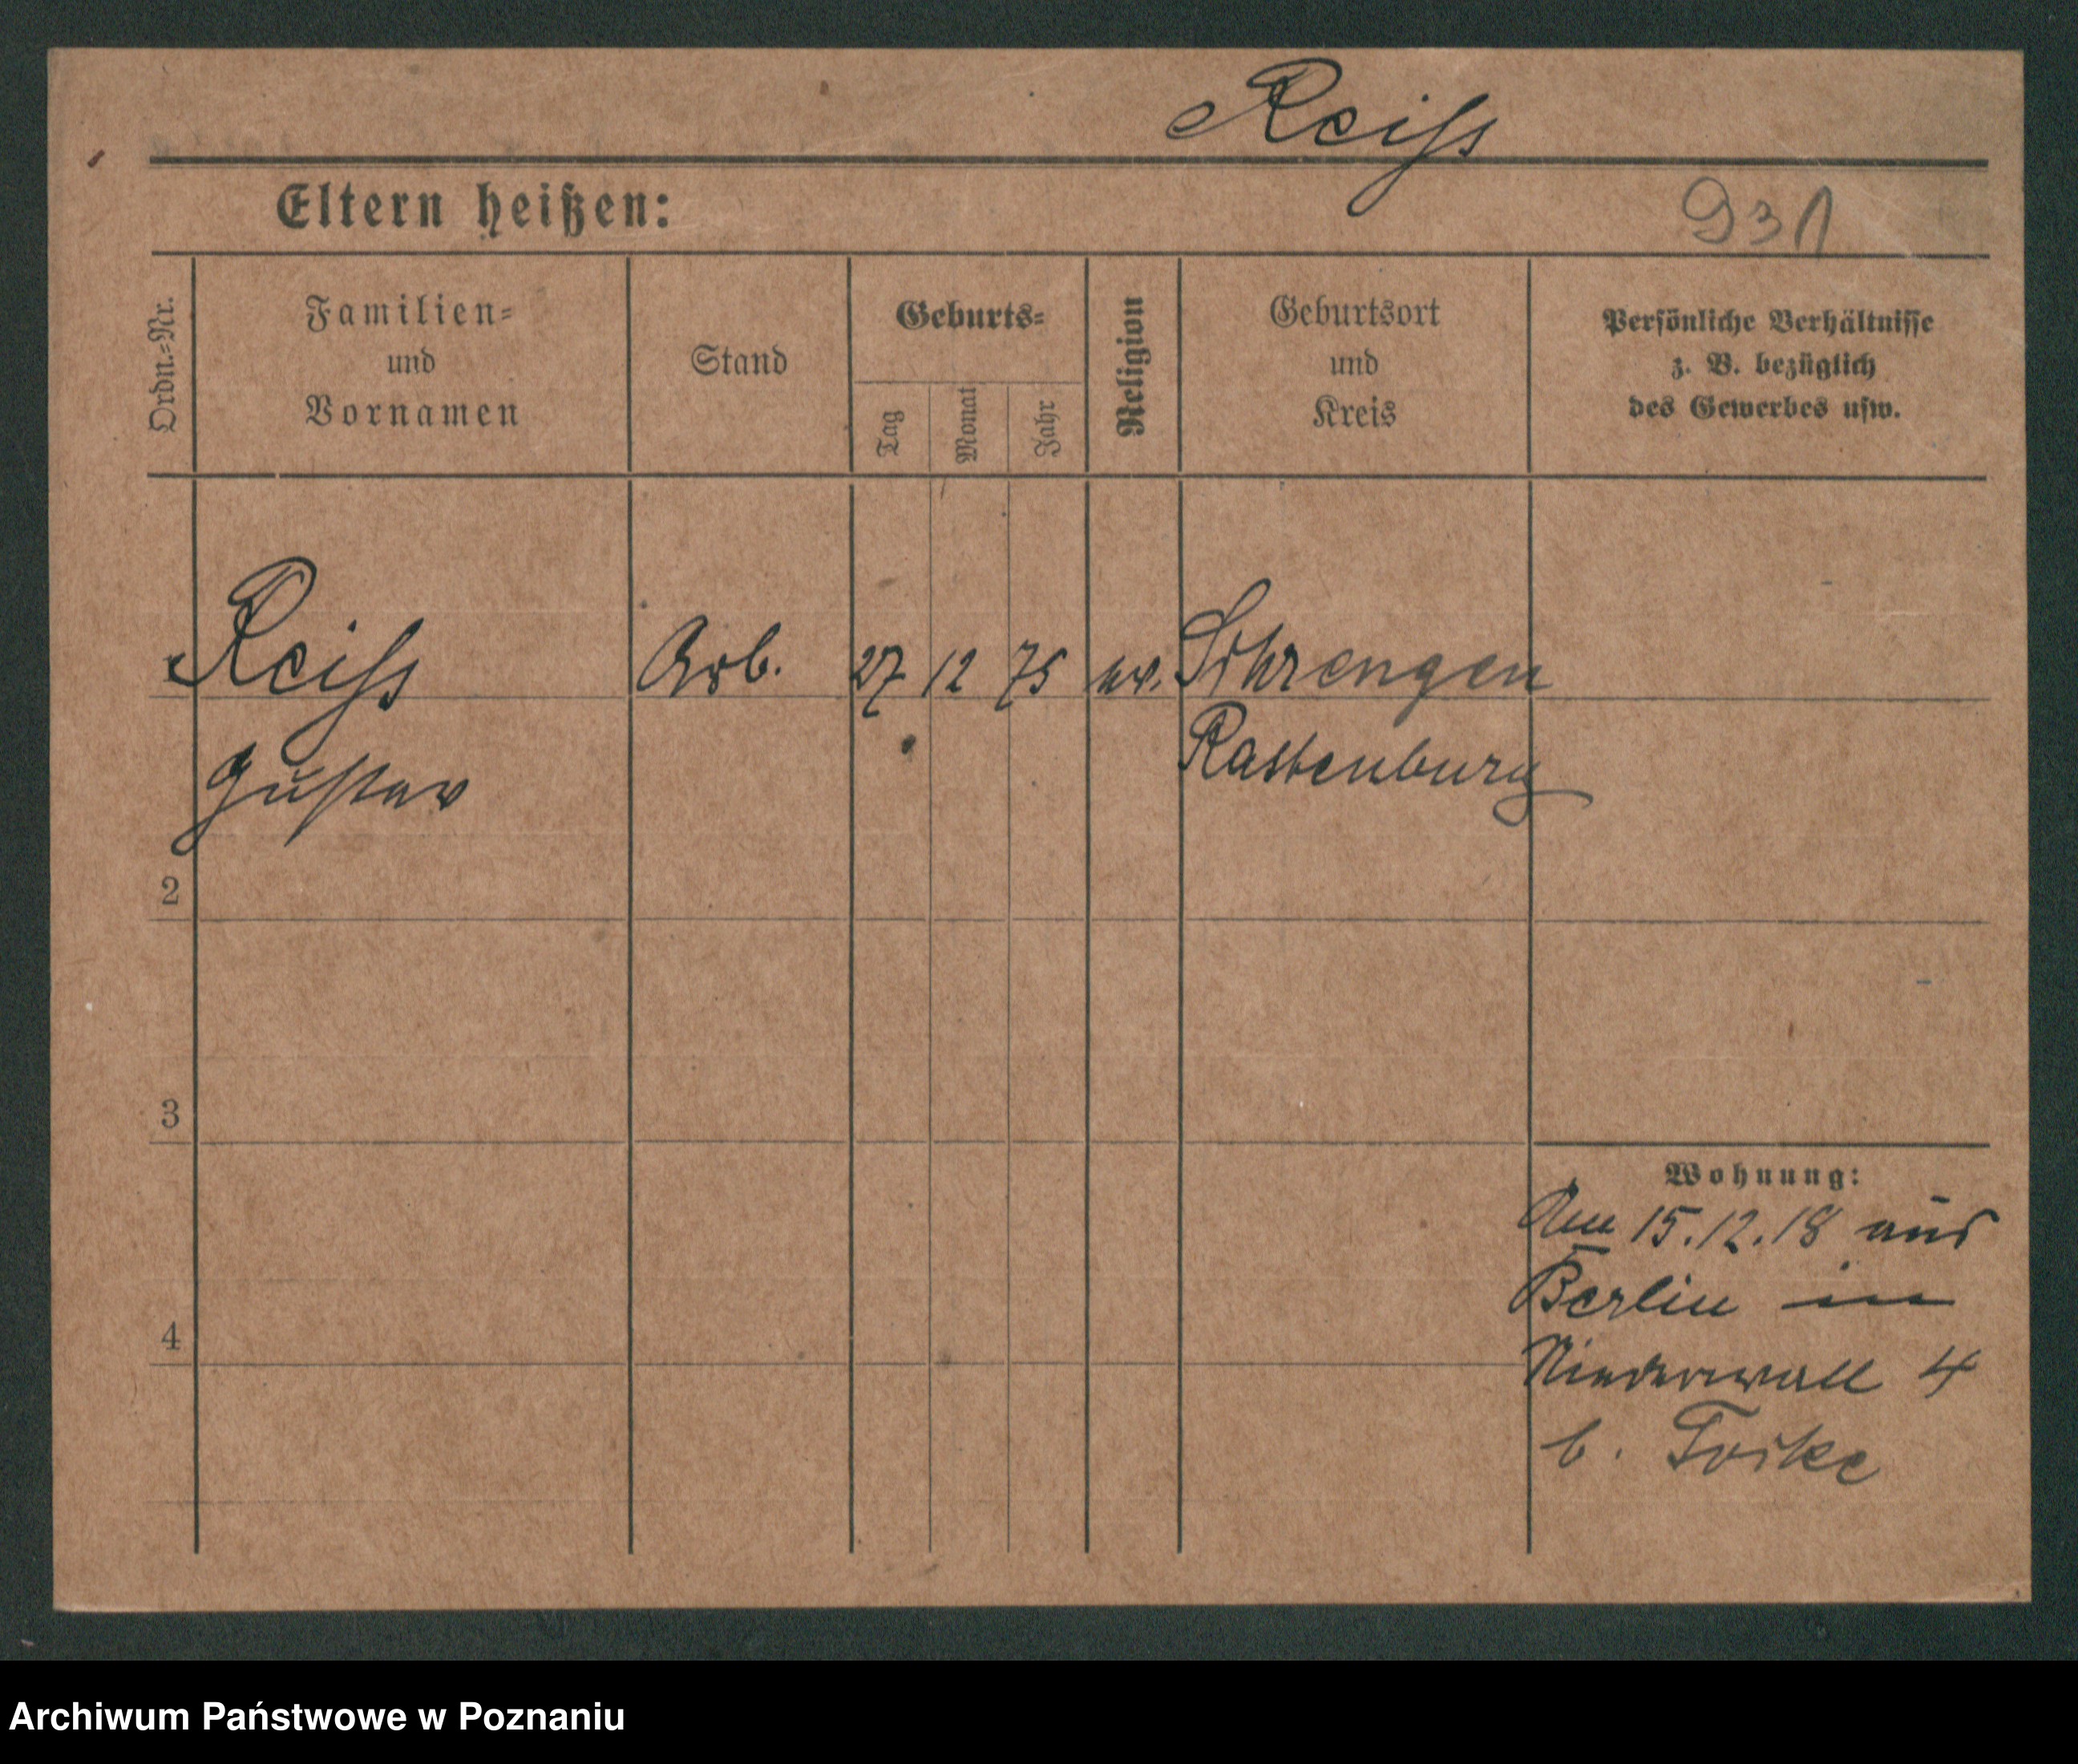 Reiss
Eltern heißen:
931
Ordn.=Nr.
Familien=
und
Vornamen
Stand
Geburts=
Tag
Monat
Jahr
Religion
Geburtsort
und
Kreis
Persönliche Verhältnisse
z. B. bezüglich
des Gewerbes usw.
Reiss Arb. 27 12 75 ev.
Gustav Rastenburg
2
3
4
Wohnung:
Am 15.12.18 aus
Berlin in
Niederwall 4
b.
Archiwum Państwowe w Poznaniu